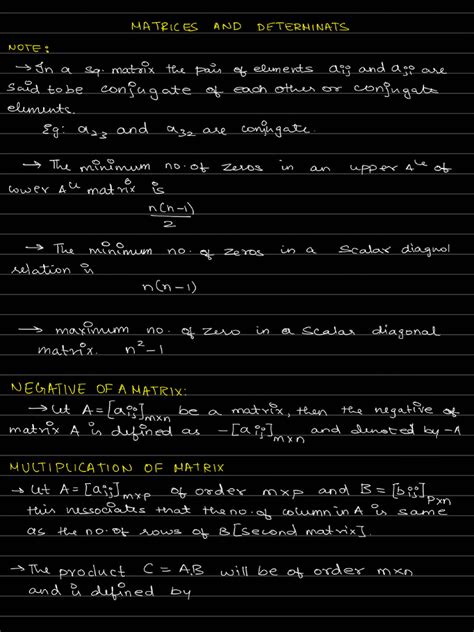 MATRICES AND DETERMINATS
NOTE:
→ In a sq. matrix the pair of elements aij and aji are
said to be conjugate of each other or conjugate
elements.
Eg: a23 and a32 are conjugate.
→ The minimum no. of zeros in an upper Δle of
lower Δle matrix is
n(n-1)
2
→ The minimum no. of zeros in a Scalar diagnol
relation is
n(n-1)
→ maximum no. of zero in a scalar diagonal
matrix. n²-1
NEGATIVE OF A MATRIX:
→ let A = [aij]mxn be a matrix, then the negative of
matrix A is defined as -[aij]mxn and denoted by -A
MULTIPLICATION OF MATRIX
→ let A = [aij]mxp of order mxp and B = [bij]pxn
this nessociates that the no. of column in A is same
as the no. of rows of B [Second matrix].
→ The product C = A.B will be of order mxn
and is defined by